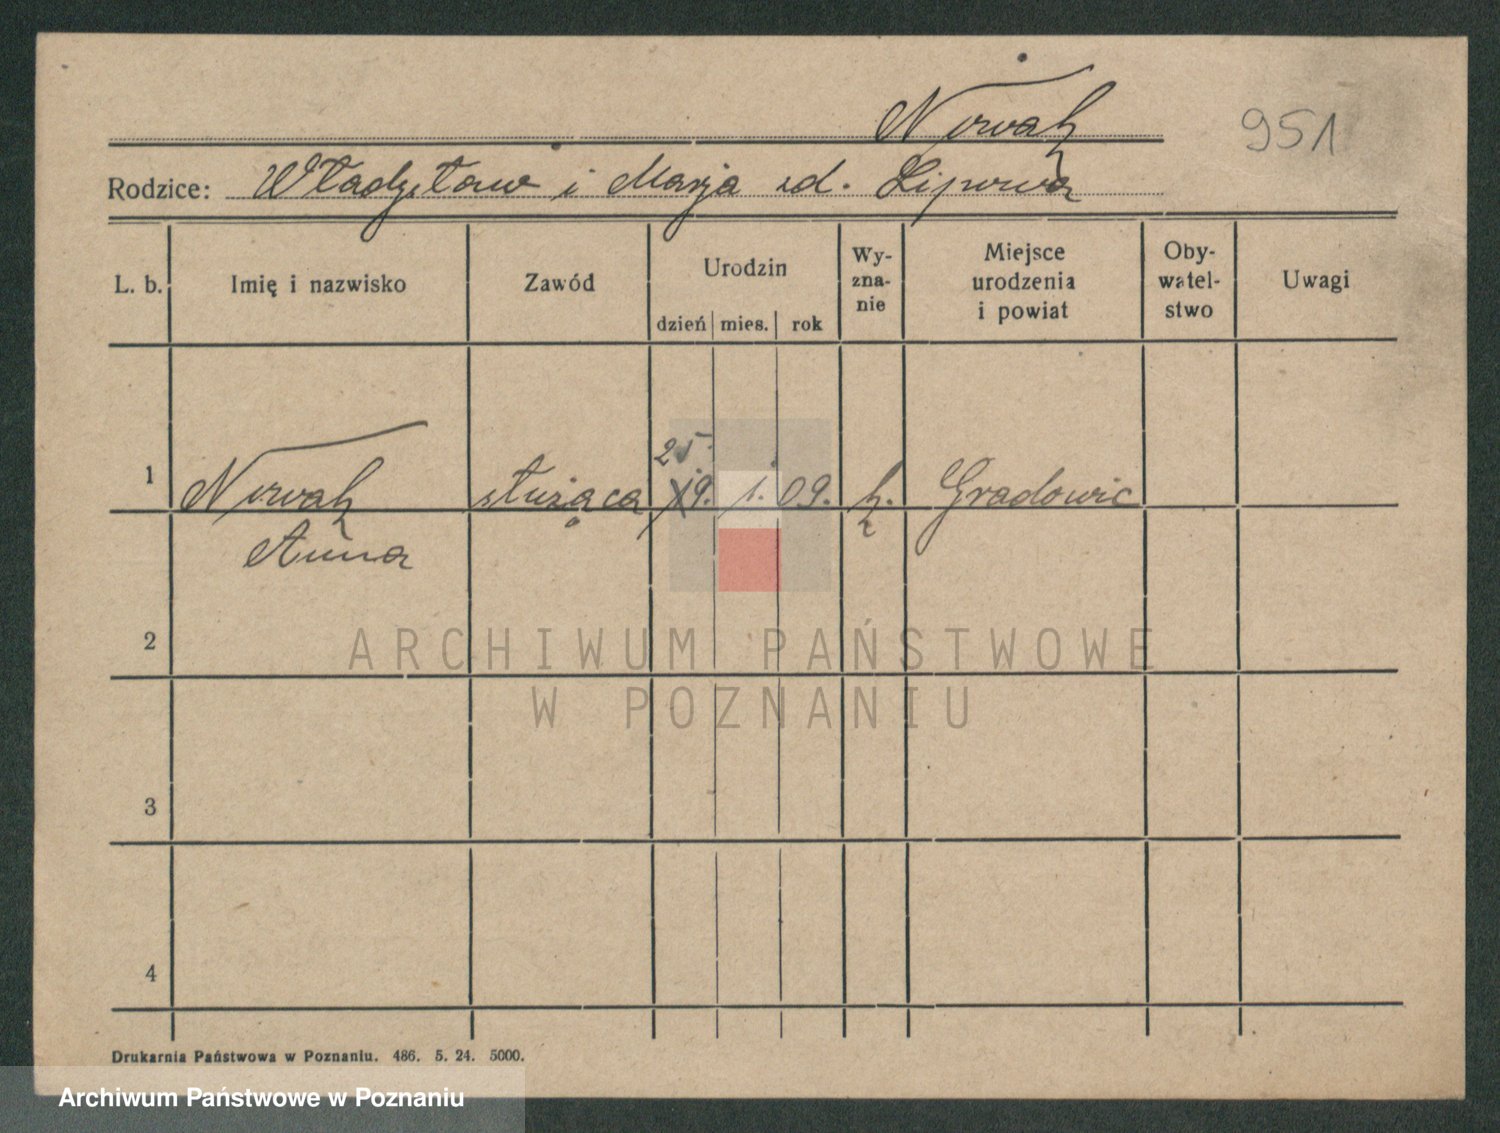 Nowak
951
Rodzice: Władysław i Marja zd. Lipowa
L. b. Imię i nazwisko Zawód Urodzin dzień mies. rok Wy-zna-nie Miejsce urodzenia i powiat Oby-watel-stwo Uwagi
25.
1 Nowak służąca 19. 1. 09. k. Gradowic
Anna
2
ARCHIWUM PAŃSTWOWE
W POZNANIU
3
4
Drukarnia Państwowa w Poznaniu. 486. 5. 24. 5000.
Archiwum Państwowe w Poznaniu